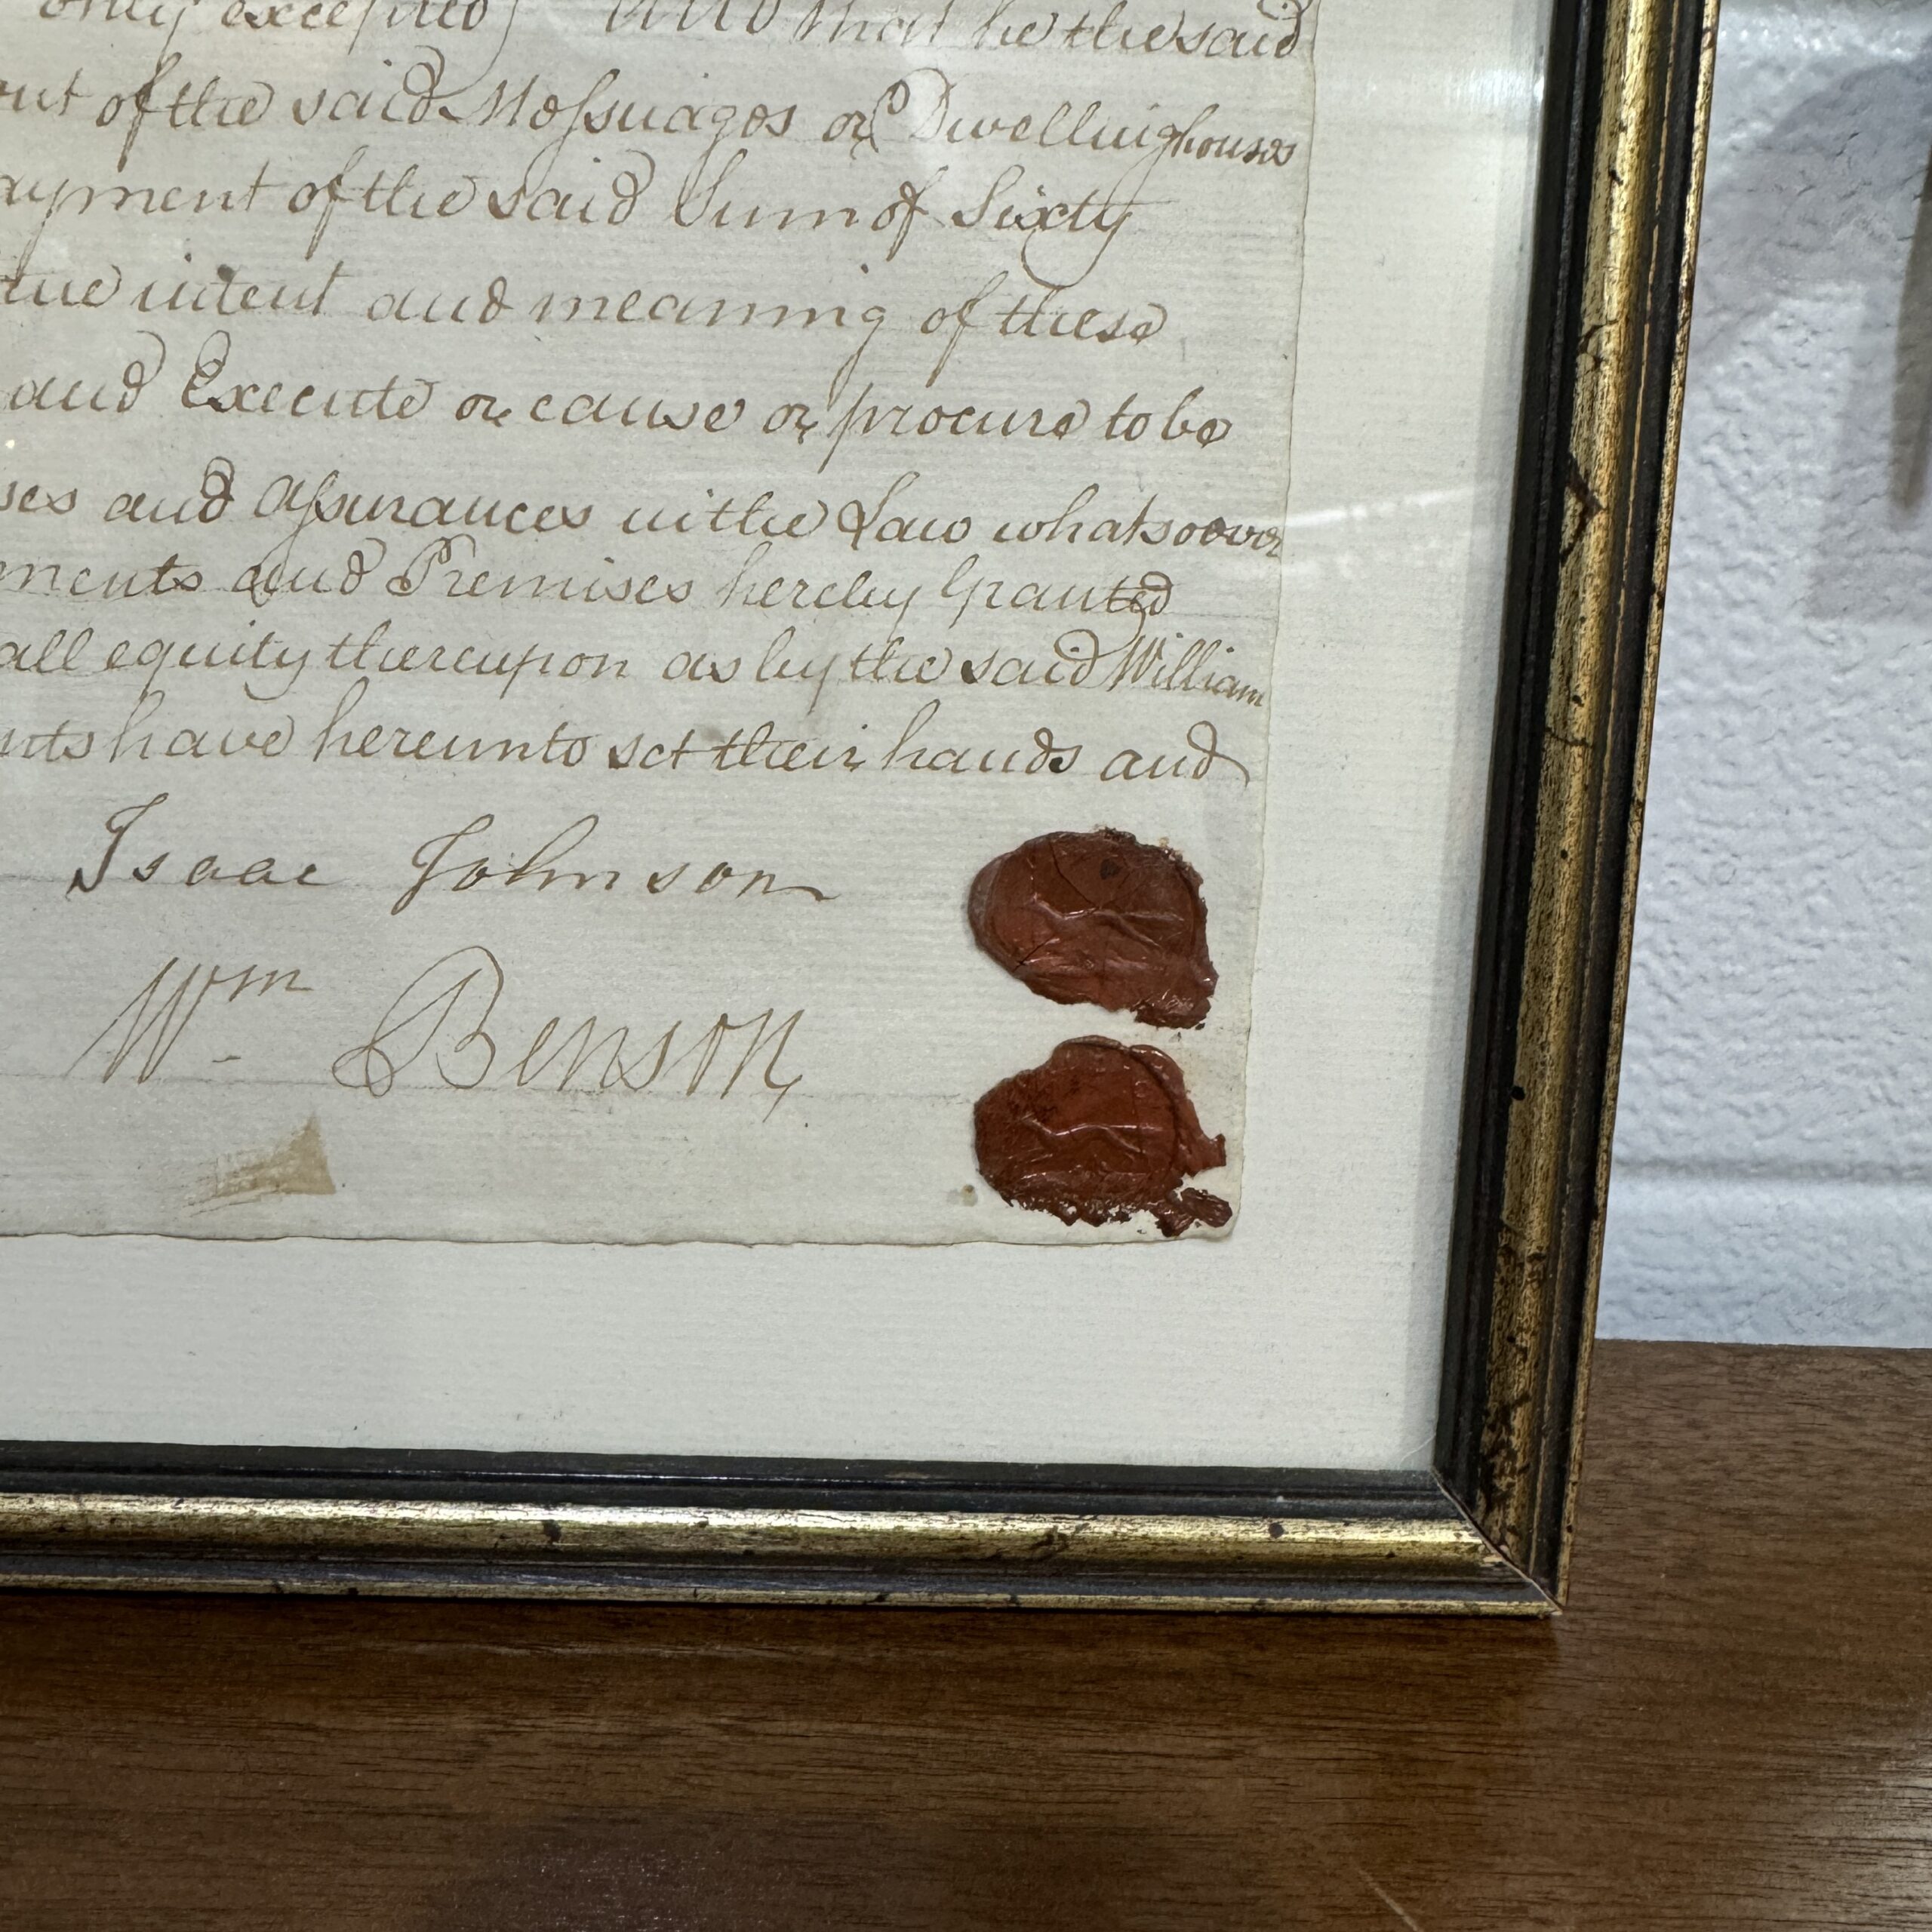 only excepted) And that he the said
out of the said Messuages or Dwellinghouses
ayment of the said Sum of Sixty
true intent and meaning of these
and Execute or cause or procure to be
ses and Assurances in the Law whatsoever
ments and Premises hereby Granted
all equity thereupon as by the said William
nts have hereunto set their hands and
Isaac Johnson
Wm Benson